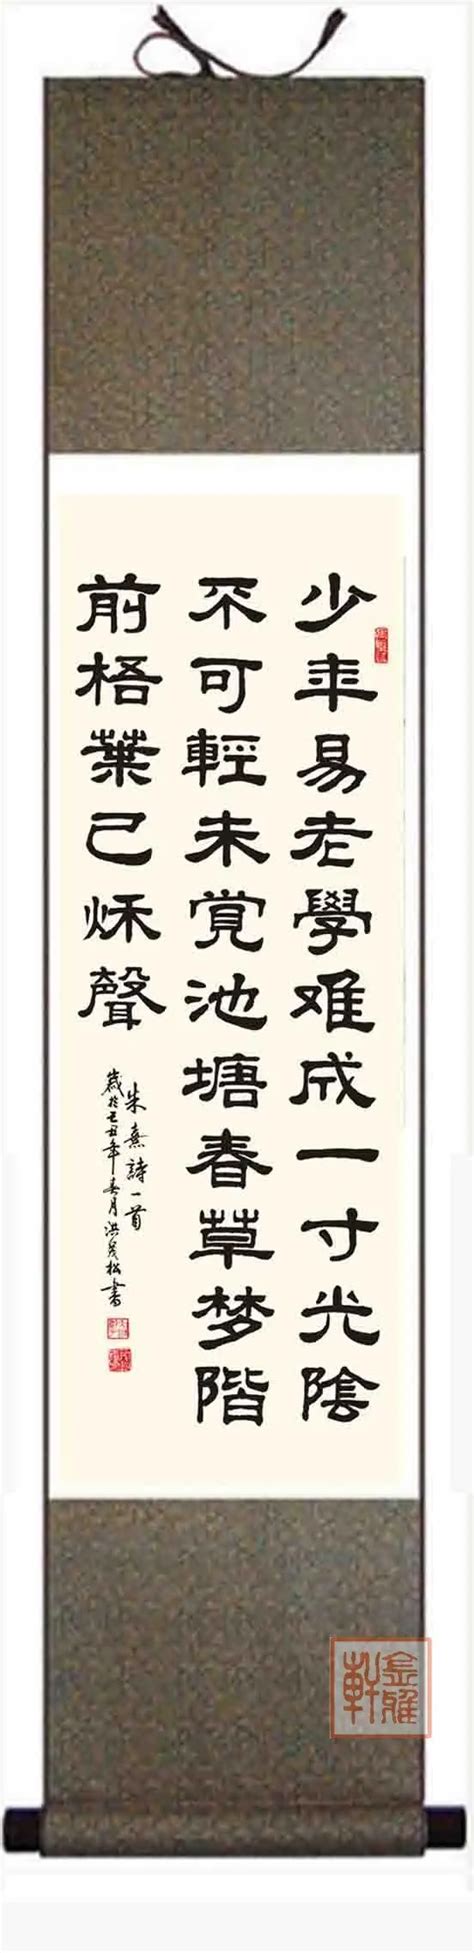 少年易老學难成一寸光陰
不可輕未覚池塘春草梦階
前梧葉已秌聲
朱熹詩一首
歲於己丑年春月洪松書
金雅軒